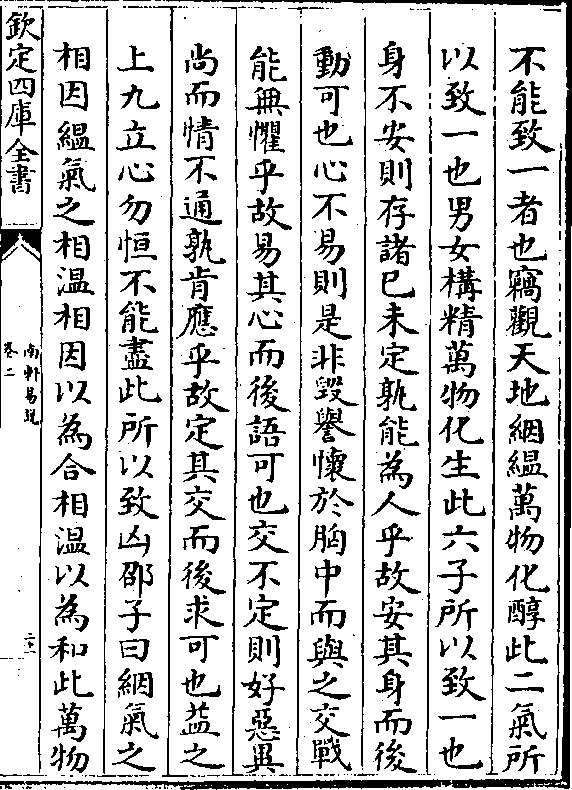 不能致一者也竊觀天地絪緼萬物化醇此二氣所
以致一也男女構精萬物化生此六子所以致一也
身不安則存諸已未定孰能為人乎故安其身而後
動可也心不易則是非毀譽懷於胸中而與之交戰
能無懼乎故易其心而後語可也交不定則好惡異
尚而情不通孰肯應乎故定其交而後求可也益之
上九立心勿恒不能盡此所以致凶邵子曰絪氣之
相因緼氣之相溫相因以為合相溫以為和此萬物
欽定四庫全書
南軒易説
卷二